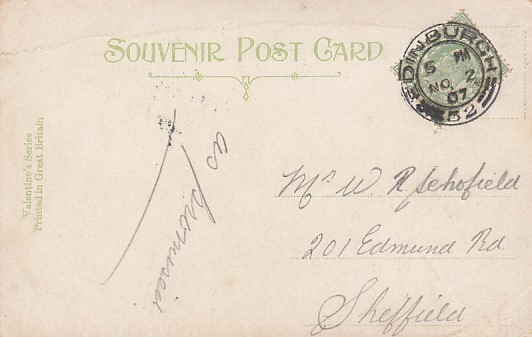 SOUVENIR POST CARD
EDINBURGH
5 PM
NO 2
07
52
Valentine's Series
Printed in Great Britain
as promised
Mr W. R Schofield
201 Edmund Rd
Sheffield